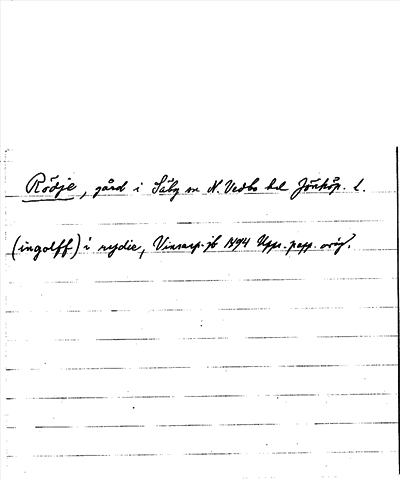 Rödje, gård i Säby sn N. Vedbo hd Jönköp. l.
(ingolff) i rydie, Vinsarp. jb 1594 Upps. papp. orig.